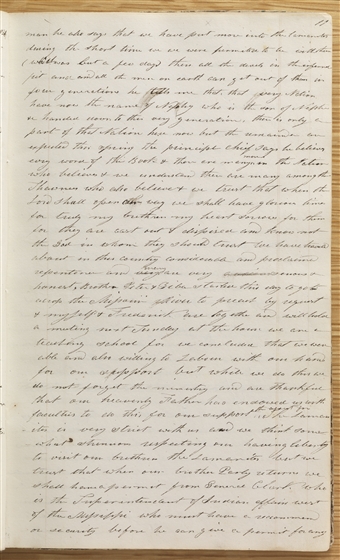 17
man he also says that we have put more into the lamanites
during the short time we were permitted to be with them
(which was but a few days) then all the devels in the infernal
pit and all the men on earth can get out of them in
four generations he tells me that that every Nation
have now the name of Nephy who is the son of Nephi
& handed down to this very generation, there is only a
part of this Nation here now but the remainder are
expected this spring the principle chief says he believes
evry word of the Book & there are many more in the Nation
who believe & we understand there are many among the
Shawnees who also believe & we trust that when the
Lord shall open our way we shall have glorious times
for truly my brethren my heart sorrows for them
for they are cast out & dispised and know not
the God in whom they should trust we have traveled
about in this country considerable and proclaimed
repentance and are very
honest Brother Peter & Bro started this day to go to
across the Missouri River to preach by request
& myself & Frederick are together and will hold
a meeting next Tuesday at the house we are a
teaching school for we concluded that we were
able and also willing to Labour with our hands
for our support but while we do this we
do not forget the ministry and are thankful
that our heavenly Father has endowed us with
faculties to do this for our support the agent for the Laman
ites is very strict with us and we think some
what strenuous respecting our having liberty
to visit our brethren the Lamanites but we
trust that when our brother Parly returns we
shall have a permit from General Clark, who
is the Superintendent of Indian affairs west
of the Missisippi who must have a recommen
or security before he can give a permit for any